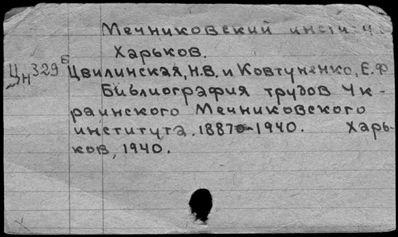 Мечниковский инсти
Харьков.
Цн329б Цвилинская, Н.В. и Ковтуненко, Е.Ф
Библиография трудов Ук-
раинского Мечниковского
института. 1887-1940. Харь-
ков, 1940.